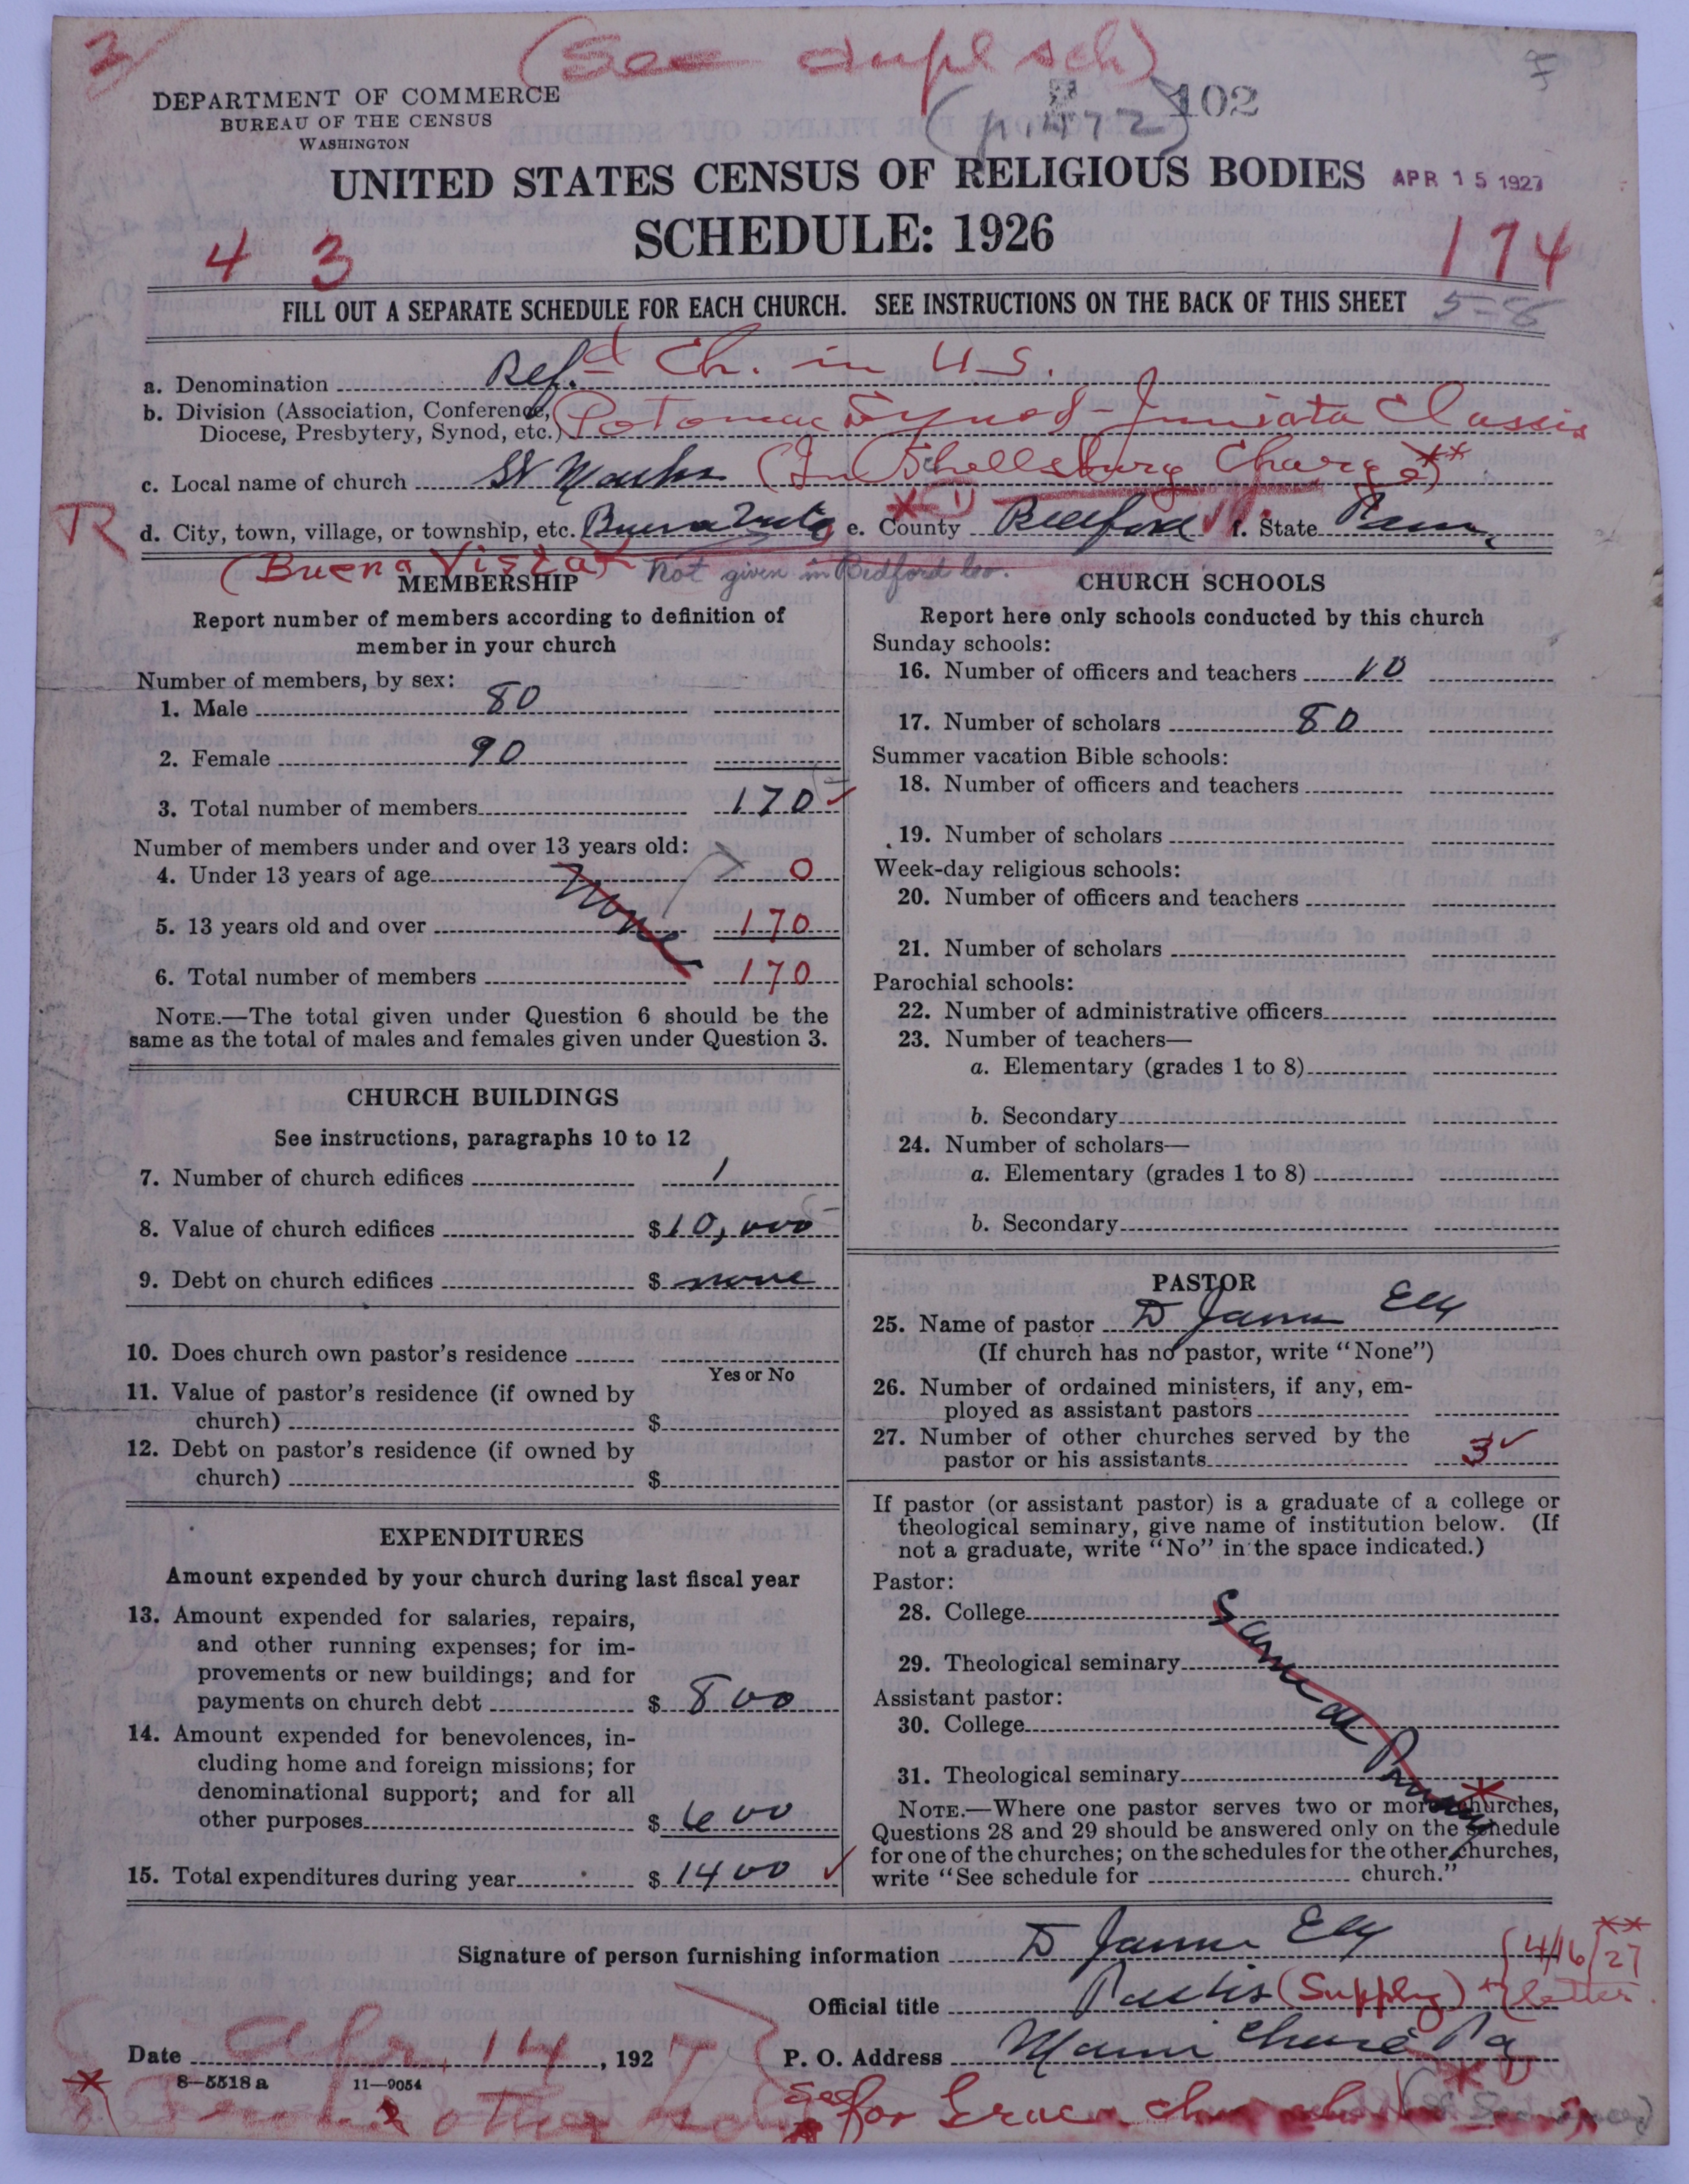 3
(See dupl sch)
DEPARTMENT OF COMMERCE
BUREAU OF THE CENSUS
WASHINGTON
(p. 472) 102
UNITED STATES CENSUS OF RELIGIOUS BODIES APR 15 1927
SCHEDULE: 1926
4 3 174
FILL OUT A SEPARATE SCHEDULE FOR EACH CHURCH. SEE INSTRUCTIONS ON THE BACK OF THIS SHEET 5-8
a. Denomination Ref.d Ch. in U.S.
b. Division (Association, Conference, Diocese, Presbytery, Synod, etc.) Potomac Synod - Juniata Classis
c. Local name of church St Marks (In Schellsburg Charge)**
R d. City, town, village, or township, etc. Buena Vista e. County Bedford f. State Penn.
(Buena Vista) Not given in Bedford Co.
MEMBERSHIP
Report number of members according to definition of
member in your church
Number of members, by sex:
1. Male 80
2. Female 90
3. Total number of members 170
Number of members under and over 13 years old:
4. Under 13 years of age None 0
5. 13 years old and over 170
6. Total number of members 170
NOTE.—The total given under Question 6 should be the
same as the total of males and females given under Question 3.
CHURCH BUILDINGS
See instructions, paragraphs 10 to 12
7. Number of church edifices 1
8. Value of church edifices $10,000
9. Debt on church edifices $ none
10. Does church own pastor's residence
Yes or No
11. Value of pastor's residence (if owned by
church) $
12. Debt on pastor's residence (if owned by
church) $
EXPENDITURES
Amount expended by your church during last fiscal year
13. Amount expended for salaries, repairs,
and other running expenses; for im-
provements or new buildings; and for
payments on church debt $ 800
14. Amount expended for benevolences, in-
cluding home and foreign missions; for
denominational support; and for all
other purposes $ 600
15. Total expenditures during year $ 1400
CHURCH SCHOOLS
Report here only schools conducted by this church
Sunday schools:
16. Number of officers and teachers 10
17. Number of scholars 80
Summer vacation Bible schools:
18. Number of officers and teachers
19. Number of scholars
Week-day religious schools:
20. Number of officers and teachers
21. Number of scholars
Parochial schools:
22. Number of administrative officers
23. Number of teachers—
a. Elementary (grades 1 to 8)
b. Secondary
24. Number of scholars—
a. Elementary (grades 1 to 8)
b. Secondary
PASTOR
25. Name of pastor D James Ely
(If church has no pastor, write "None")
26. Number of ordained ministers, if any, em-
ployed as assistant pastors
27. Number of other churches served by the
pastor or his assistants 3
If pastor (or assistant pastor) is a graduate of a college or
theological seminary, give name of institution below. (If
not a graduate, write "No" in the space indicated.)
Pastor:
28. College
29. Theological seminary
Assistant pastor:
30. College
31. Theological seminary
Same as
NOTE.—Where one pastor serves two or more churches,
Questions 28 and 29 should be answered only on the schedule
for one of the churches; on the schedules for the other churches,
write "See schedule for church."
Signature of person furnishing information D James Ely
Official title (Supply) 4/16/27 letter **
Date Apr. 14, 1927 P. O. Address Pa
8—5518 a 11—9054
* other See for Grace church